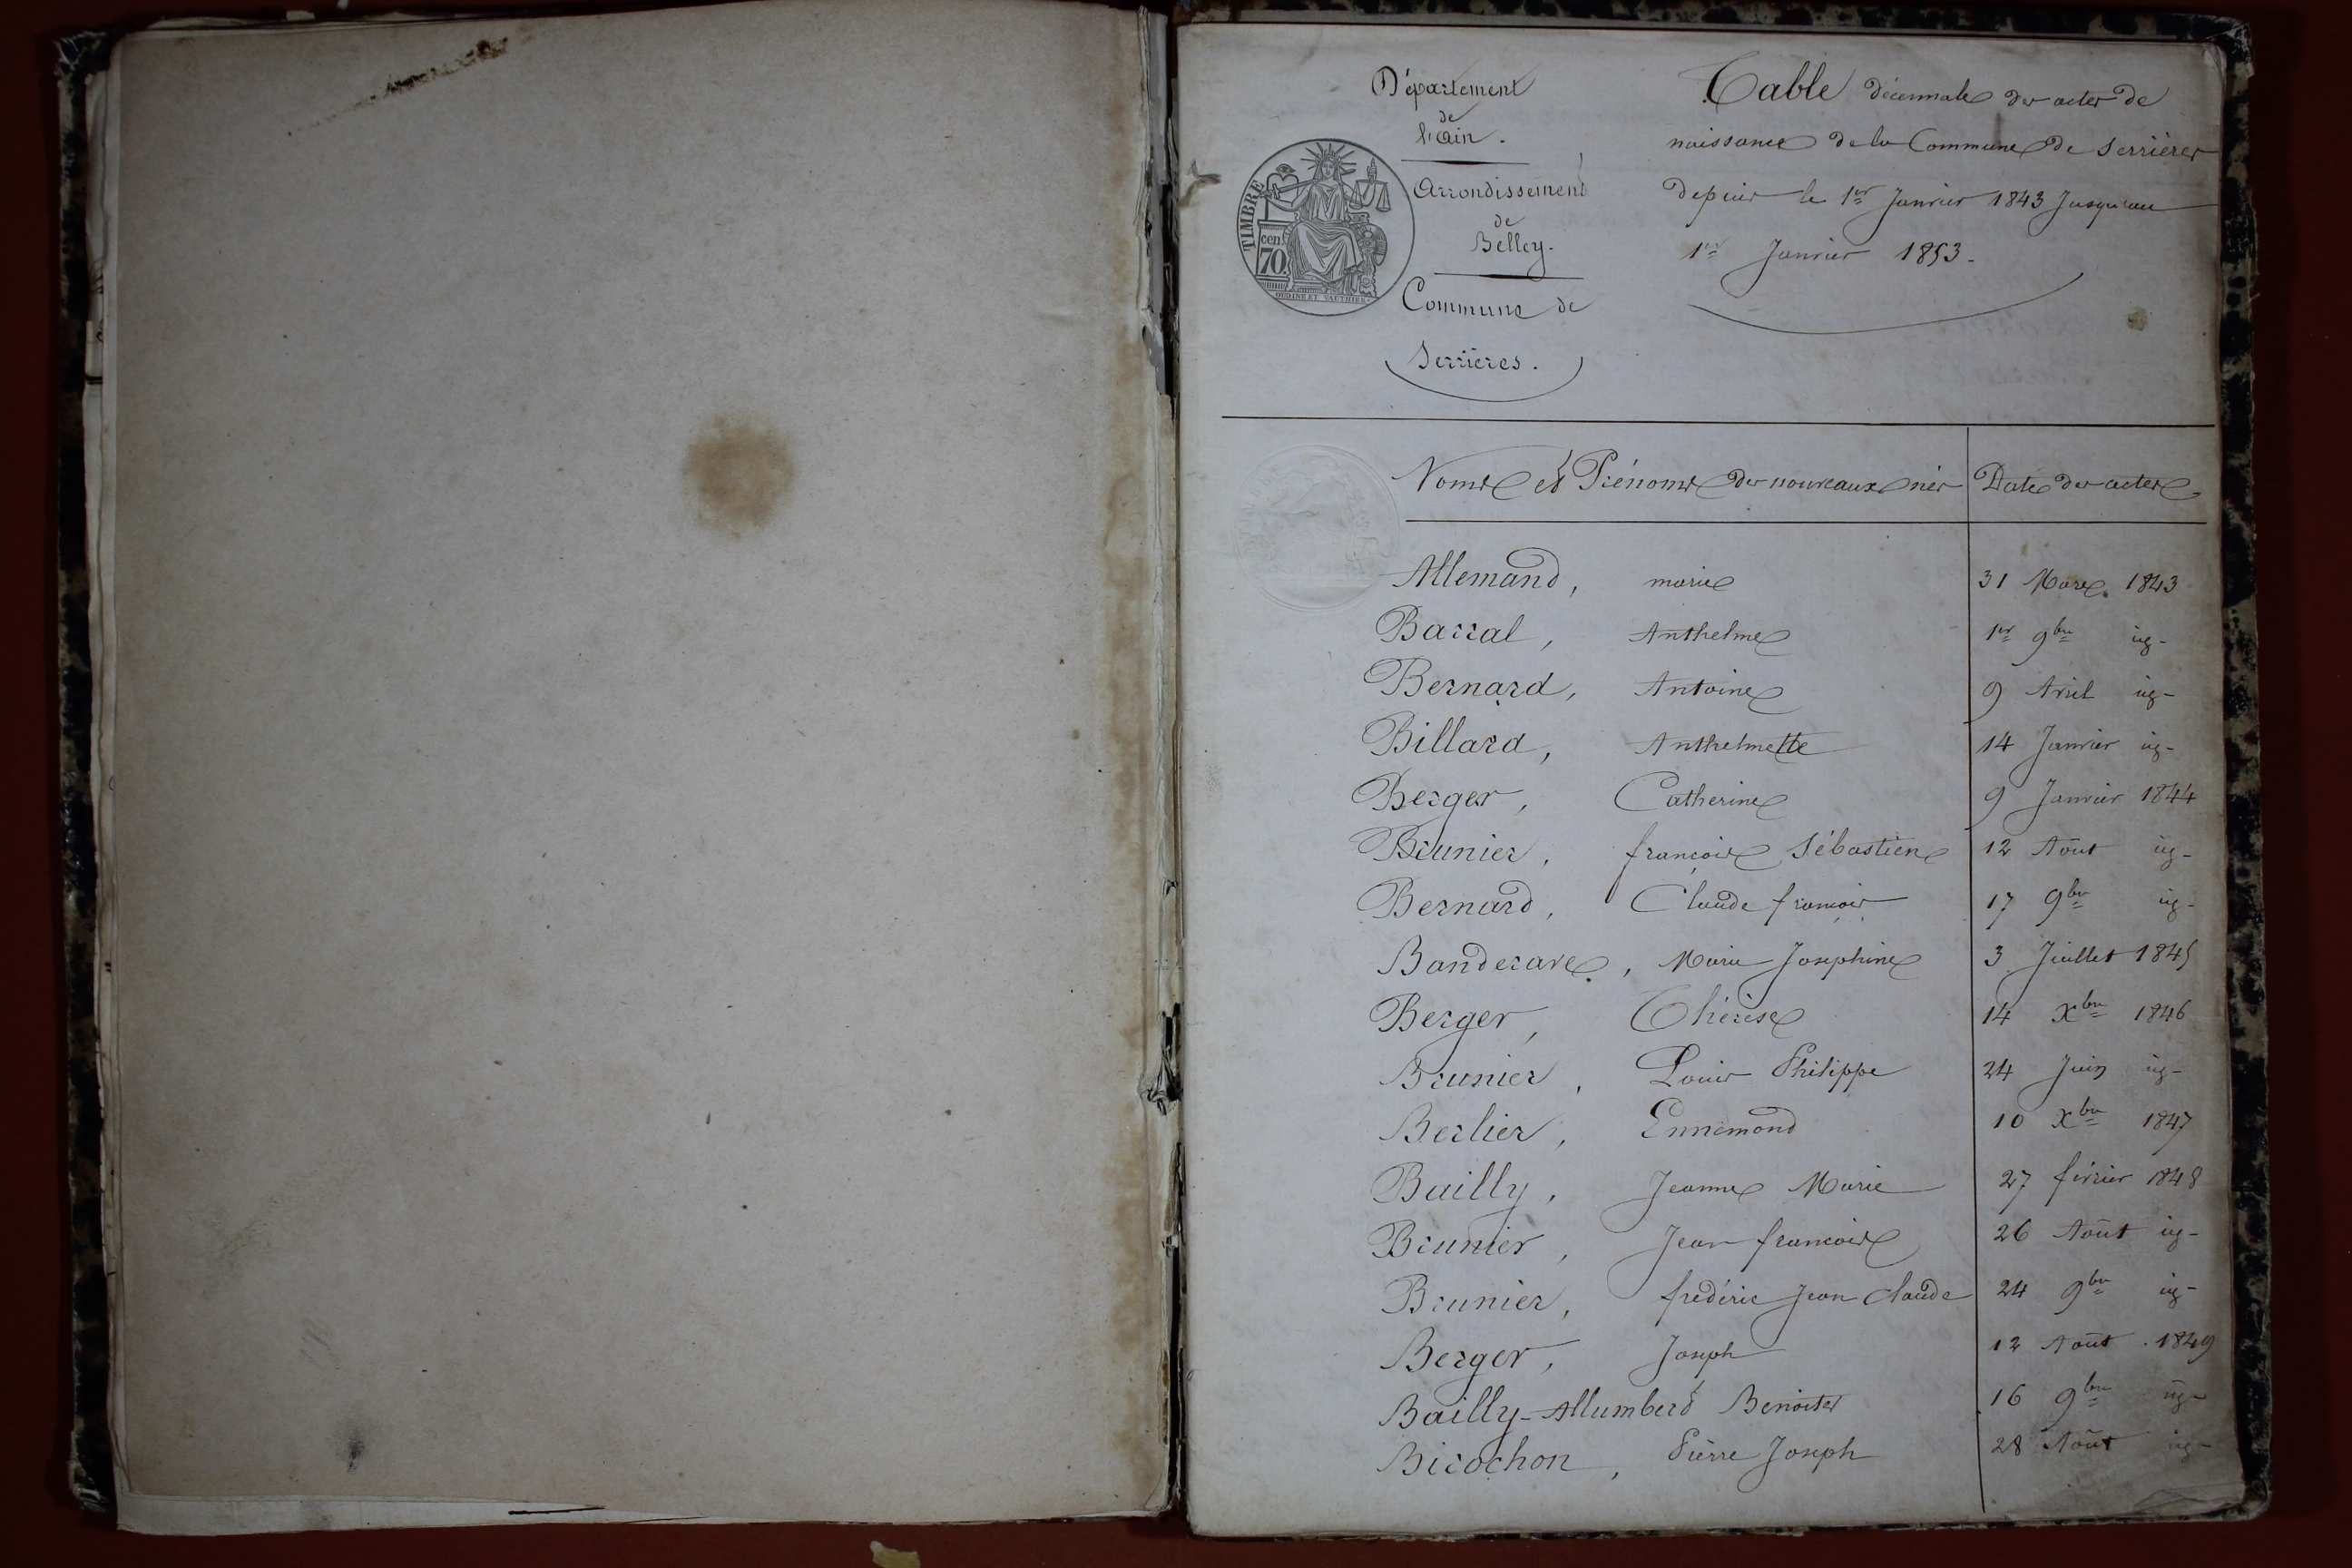 Département
de
l'Ain.
Arrondissement
de
Belley.
Commune de
Serrières.
TIMBRE
70 cen.
Table décennale des actes de
naissance de la Commune de Serrières
depuis le 1er Janvier 1843 Jusqu'au
1er Janvier 1853.
Noms et Prénoms des nouveaux nés Date des actes
Allemand, marie 31 Mars 1843
Barral, Anthelme 1er 9bre id-
Bernard, Antoine 9 Avril id-
Billard, Anthelmette 14 Janvier id-
Berger, Catherine 9 Janvier 1844
Brunier, françois Sébastien 12 Août id-
Bernard, Claude françois 17 9bre id-
Banderave, Marie Joséphine 3 Juillet 1845
Berger, Thérèse 14 Xbre 1846
Brunier, Louis Philippe 24 Juin id-
Berlier, Ennemond 10 Xbre 1847
Bailly, Jeanne Marie 27 février 1848
Brunier, Jean françois 26 Août id-
Brunier, frédéric Jean Claude 24 9bre id-
Berger, Joseph 12 Août 1849
Bailly-Allumberd Benoite 16 9bre id-
Birochon, Pierre Joseph 28 Août id-